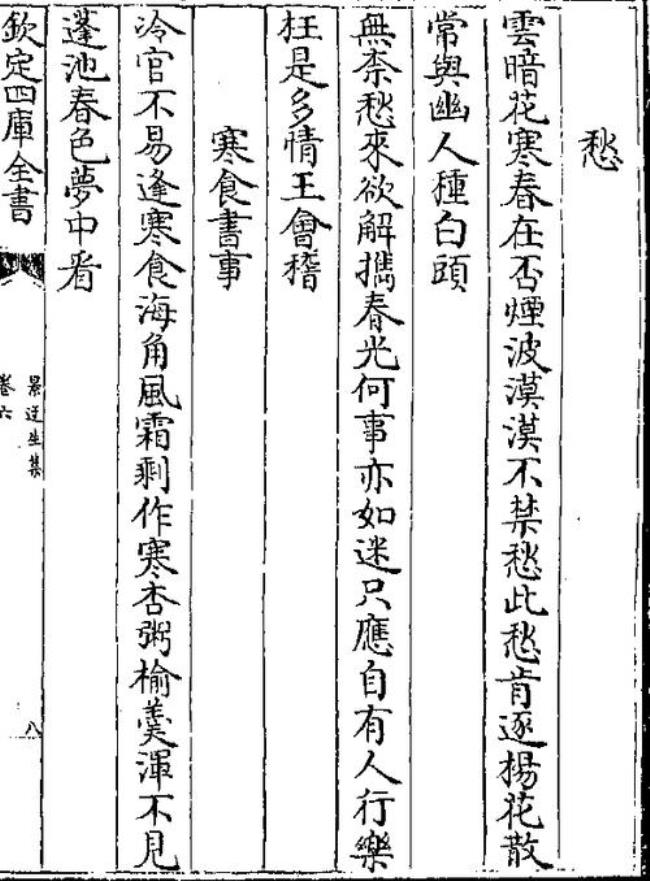 愁
雲暗花寒春在否煙波漠漠不禁愁此愁肯逐楊花散
常與幽人種白頭
無柰愁來欲解攜春光何事亦如迷只應自有人行樂
枉是多情王會稽
寒食書事
冷官不易逢寒食海角風霜剩作寒杏粥榆羮渾不見
蓬池春色夢中看
欽定四庫全書
景迂生集
卷六
八